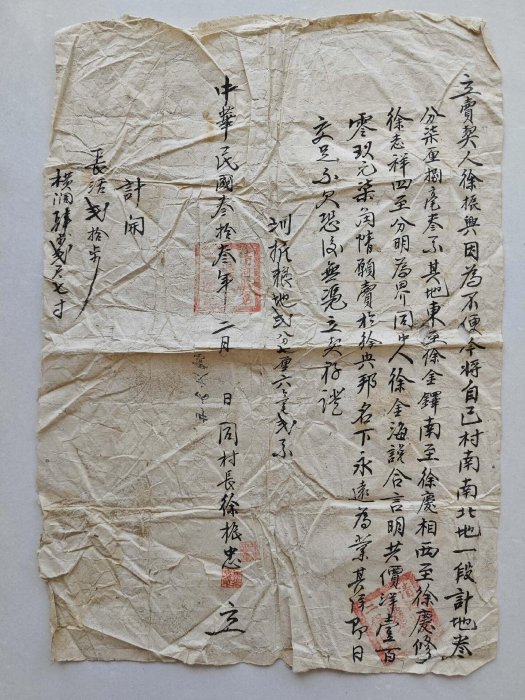 立賣契人徐振興因為不便今將自己村南南北地一段計地叁
分柒厘捌毫叁系其地東至徐金鐸南至徐慶相西至徐慶修
徐志祥四至分明為界同中人徐金海說合言明共價洋壹百
零玖元柒角情願賣於徐興邦名下永遠為業其洋即日
交足不欠恐後無憑立契存證
地弍分七厘六毫弍系
中華民國叁拾叁年二月 日同村長徐振忠 立
計開
長活弍拾
橫濶弍尺七寸